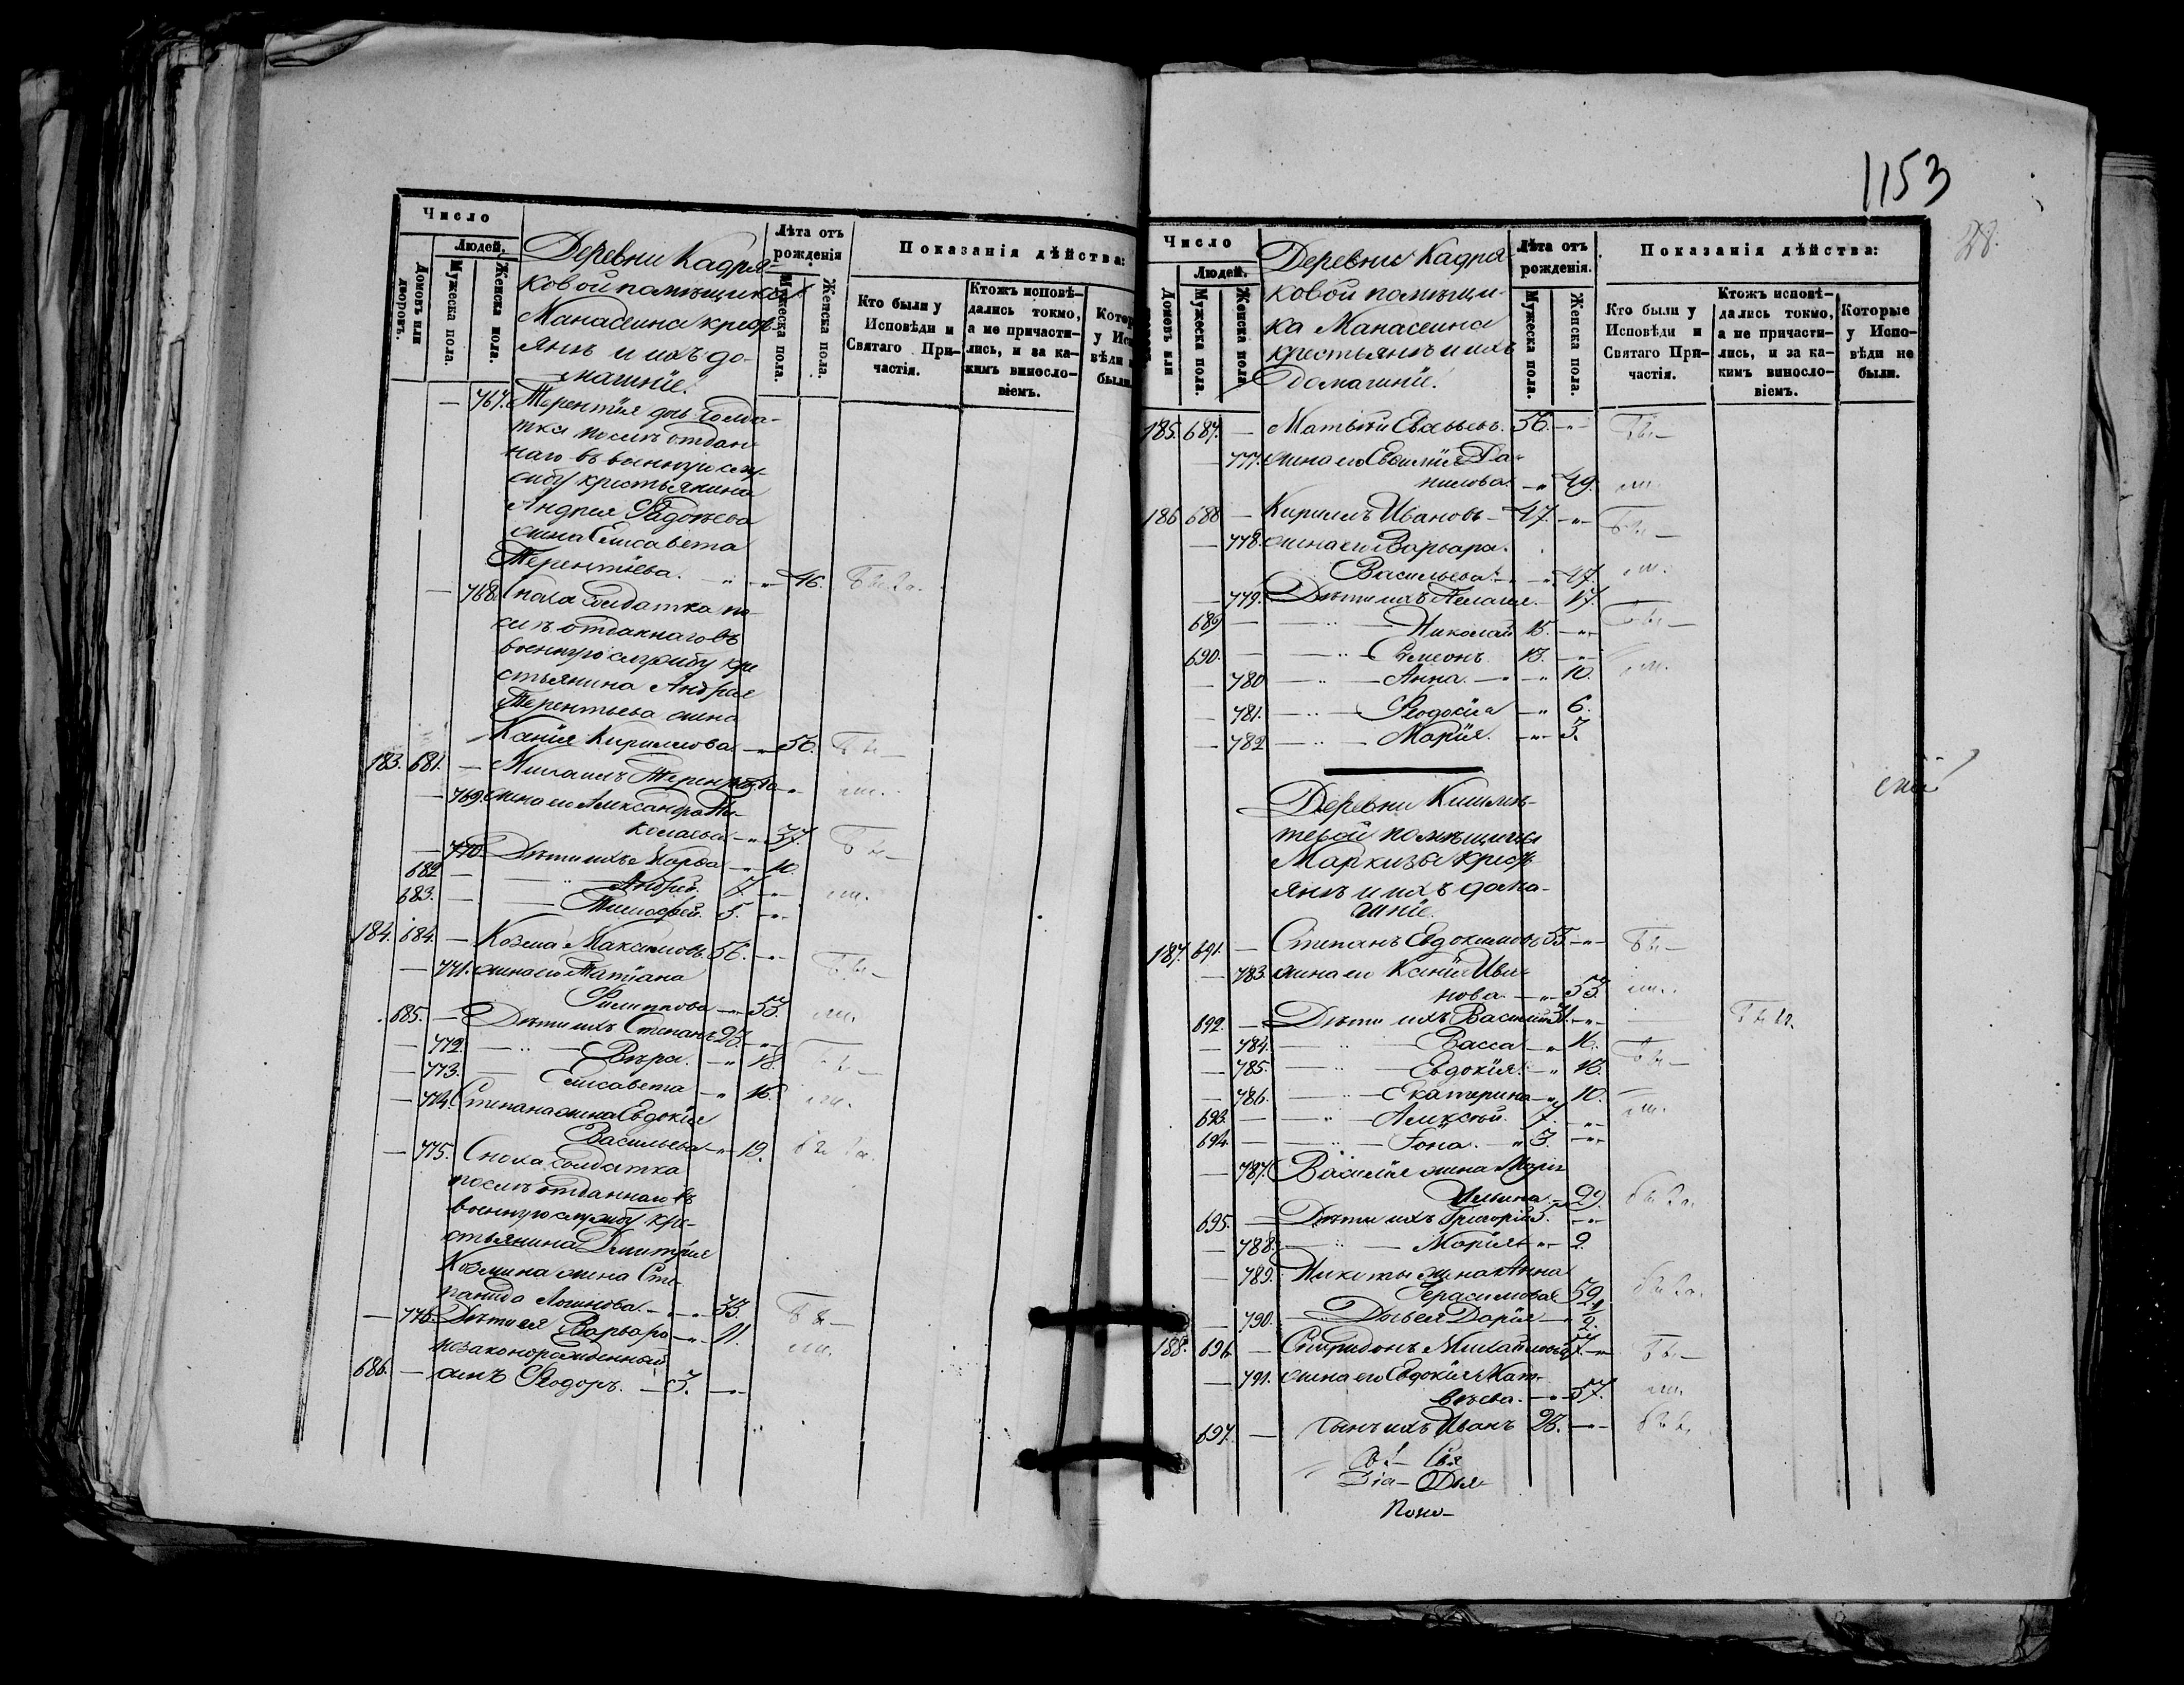 Число
Людей.
Домовъ или дворовъ.
Мужеска пола.
Женска пола.
Деревни Кадря-
ковой помѣщика
Манасеина кресть
янъ и ихъ до-
машніе.
Лѣта отъ
рожденія
Мужеска пола.
Женска пола.
Показанія дѣйства:
Кто были у
Исповѣди и
Святаго При-
частія.
Ктожъ исповѣ-
дались токмо,
а не причасти-
лись, и за ка-
кимъ винсло-
віемъ.
— 767. Терентія дочь солда-
тка послѣ отдан-
наго въ военную слу-
жбу крестьянина
Андрея
жена Елисавета
Терентіева. — „ — 46.
— 768. Сноха солдатка по-
слѣ отданнаго въ
военную службу кре
стьянина Андрея
Терентьева жена
Ксенія Кириллова — „ 56.
183. 681. — Михаилъ
— 769. жена его Александра Ни-
колаева — „ 37.
— 770. Дѣти ихъ Марѳа — „ 10.
682 — — „ — Андрей. 7. — „ —
683. — — Тимоѳей. 5. — „ —
184. 684. — Козма Максимовъ. 56. — „ —
— 771. жена его Татіана
Филиппова — „ — 53.
685. — Дѣти ихъ Степанъ 23. — „ —
— 772. — „ — Вѣра. — „ 18.
— 773. — Елисавета — „ 16.
— 774. Степана жена Евдокія
Васильева — „ — 19.
— 775. Сноха солдатка
послѣ отданнаго въ
военную службу кре-
стьянина Димитрія
Козмина жена Сте-
панида Логинова. — „ — 33.
— 776. Дѣти ея Варвара — „ — 11.
незаконорожденный
686. — сынъ Ѳеодоръ. — 3. — „ —
1153
28.
Число
Людей.
Домовъ или
Мужеска пола.
Женска пола
Деревни Кадря
ковой помѣщи-
ка Манасеина
крестьянъ и ихъ
домашніе.
Лѣта отъ
рожденія.
Мужеска пола.
Женска пола.
Показанія дѣйства:
Кто были у
Исповѣди и
Святаго При-
частія.
Ктожъ исповѣ-
дались токмо,
а не причасти-
лись, и за ка-
кимъ винсло-
віемъ.
Которые
у Испо-
вѣди не
были.
185. 687. — Матвѣй 56. — „ —
— 777. жена его Евѳимія Да-
нилова. — „ 49.
186 688 — Кириллъ Ивановъ — 47. — „ —
— 778. жена его Варвара.
Васильева. — „ — 47.
— 779. Дѣти ихъ Пелагія. — 17.
689 — — „ — Николай 15. — „ —
690. — — „ — Симеонъ 13. — „ —
— 780 — „ — Анна. — „ — 10.
— 781. — „ — Ѳеодосія — „ 6.
— 782 — „ — Марія. — „ — 3.
Деревни
тевой помѣщицы
Маркизы кресть
янъ и ихъ дома-
шніе.
187. 691. — Степанъ Евдокимовъ 55 — „ —
— 783. жена его Ксенія Ива-
нова. — „ — 53.
692. — Дѣти ихъ Василій 31. — „ —
— 784. — „ — Васса — „ 16.
— 785. — „ — Евдокія. — „ 13.
— 786. — „ — Екатерина — „ 10.
693. — — „ — Алексѣй. 7. — „ —
694. — — „ — Іона. — „ 3. — „ —
— 787. Василія жена Марія
Ильина. — 29.
695. — Дѣти ихъ Григорій 5. — „ —
— 788. — „ — Марія — „ — 2.
— 789. Никиты жена Анна
Герасимова
— 790. — Дочь ея Дарія — 2.
188. 696. — Спиридонъ Михайловъ
— 791. жена его Евдокія Мат-
вѣева. — „ — 57.
697. — Сынъ ихъ Иванъ 23. — „ —
Діа —
Поно —